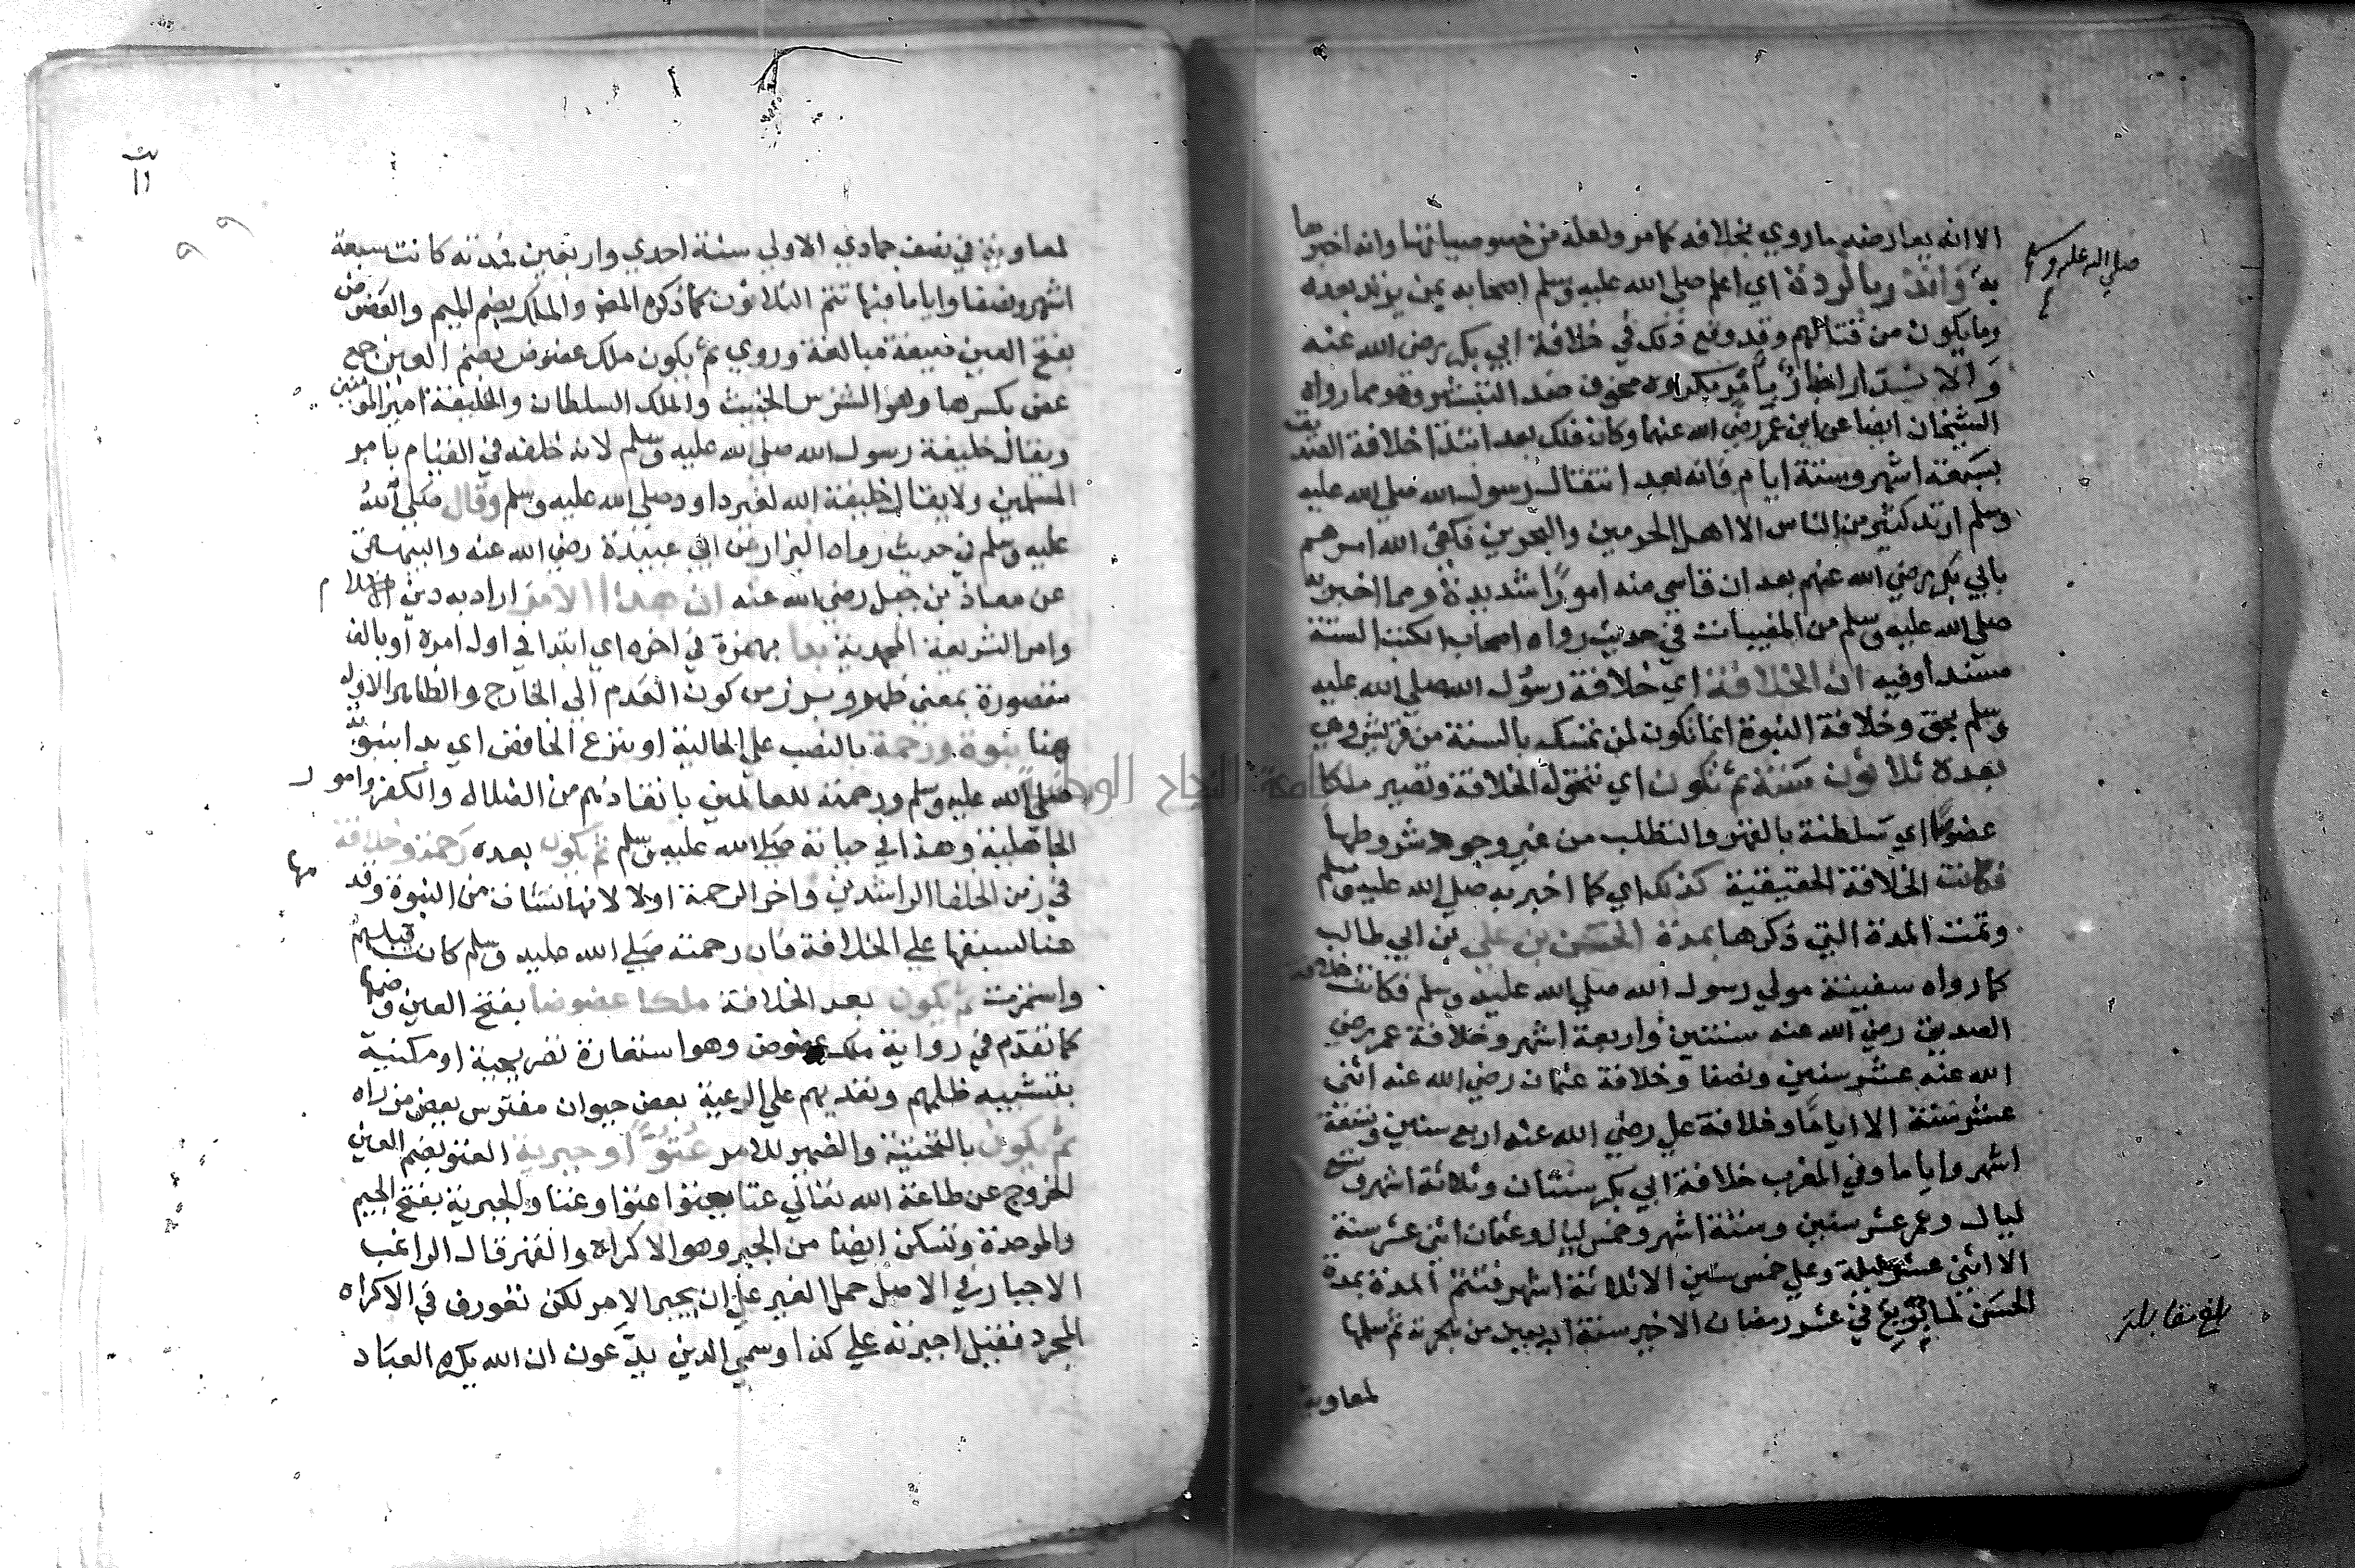 الا انه يعارضه ما روي بخلافه كما مر ولعله من خصوصياتها وانه اخبرها
صلي الله عليه وسلم
به وانذر بالردة اي اعلم صلي الله عليه وسلم اصحابه بمن يرتد بعده
وما يكون من قتالهم وقد وقع ذلك في خلافة ابي بكر رضي الله عنه
الشيخان ايضا عن ابن عمر رضي الله عنهما وكان ذلك بعد ابتدا خلافة الصديق
بسبعة اشهر وستة ايام فانه بعد انتقال رسول الله صلي الله عليه
وسلم ارتد كثير من الناس الا اهل الحرمين والبحرين فكفي الله امرهم
بابي بكر رضي الله عنهم بعد ان قاسي منه امورا شديدة ومما اخبر به
صلي الله عليه وسلم من المغيبات في حديث رواه اصحاب الكتب الستة
مسندا وفيه ان الخلافة اي خلافة رسول الله صلي الله عليه
وسلم بحق وخلافة النبوة انما تكون لمن تمسك بالسنة من قريش وهي
بعده ثلاثون سنة ثم تكون اي تتحول الخلافة وتصير ملكا
عضوضا اي سلطنة بالقهر والتطلب من غير وجود شروطها
فكانت الخلافة الحقيقية كذلك اي كما اخبر به صلي الله عليه وسلم
وتمت المدة التي ذكرها بمدة الحسن بن علي بن ابي طالب
كما رواه سفينة مولي رسول الله صلي الله عليه وسلم فكانت خلافة
الصديق رضي الله عنه سنتين واربعة اشهر وخلافة عمر رضي
الله عنه عشر سنين ونصفا وخلافة عثمان رضي الله عنه اثني
عشر سنة الا اياما وخلافة علي رضي الله عنه اربع سنين وتسعة
اشهر واياما وفي المغرب خلافة ابي بكر سنتان وثلاثة اشهر وتسع
ليال وعمر عشر سنين وستة اشهر وخمس ليال وعثمان اثني عشر سنة
الا اثني عشر ليلة وعلي خمس سنين الا ثلاثة اشهر فتتم المدة بمدة
الحسن لما بويع في عشر رمضان الاخير سنة اربعين من هجرته ثم سلمها
بلغ مقابلة
لمعاوية
١١
لمعاوية في نصف جمادي الاولي سنة احدي واربعين فمدته كانت سبعة
اشهر ونصفا واياما فبها تتم الثلاثون كما ذكره المص والملك بضم الميم والعضوض
بفتح العين صيغة مبالغة وروي ثم يكون ملك عضوض بضم العين جمع
عض بكسرها وهو الشرس الخبيث والملك السلطان والخليفة امير المومنين
ويقال خليفة رسول الله صلي الله عليه وسلم لانه خلفه في القيام بامر
المسلمين ولا يقال خليفة الله لغير داود صلي الله عليه وسلم وقال صلي الله
عليه وسلم في حديث رواه البزار عن ابي عبيدة رضي الله عنه والبيهقي
عن معاذ بن جبل رضي الله عنه ان هذا الامر اراد به دين الاسلام
وامر الشريعة المحمدية بدا بهمزة في اخره اي ابتدا في اول امره او بالف
مقصورة بمعني ظهر وبرز من كون العدم الي الخارج والظاهر الاول
هنا نبوة ورحمة بالنصب علي الحالية او بنزع الخافض اي بدا بنبوته
صلي الله عليه وسلم ورحمته للعالمين بانقاذهم من الضلالة والكفر وامور
الجاهلية وهذا في حياته صلي الله عليه وسلم ثم يكون بعده رحمة وخلافة
في زمن الخلفا الراشدين واخر الرحمة اولا لانها نشات من النبوة وقدمها
هنا لسبقها علي الخلافة فان رحمته صلي الله عليه وسلم كانت قبلهم
واستمرت ثم يكون بعد الخلافة ملكا عضوضا بفتح العين وضمها
كما تقدم في رواية ملك عضوض وهو استعارة تصريحية او مكنية
بتشبيه ظلمهم وتعديهم علي الرعية بعض حيوان مفترس يعض من راه
ثم يكون بالتحتية والضمير للامر عتوا وجبرية العتو بضم العين
الخروج عن طاعة الله تعالي عتا يعتوا عتوا وعتيا والجبرية بفتح الجيم
والموحدة وتسكن ايضا من الجبر وهو الاكراه والقهر قال الراغب
الاجبار في الاصل حمل الغير علي ان يجبر الامر لكن تعورف في الاكراه
المجرد فقيل اجبرته علي كذا وسمي الذين يدعون ان الله يكره العباد